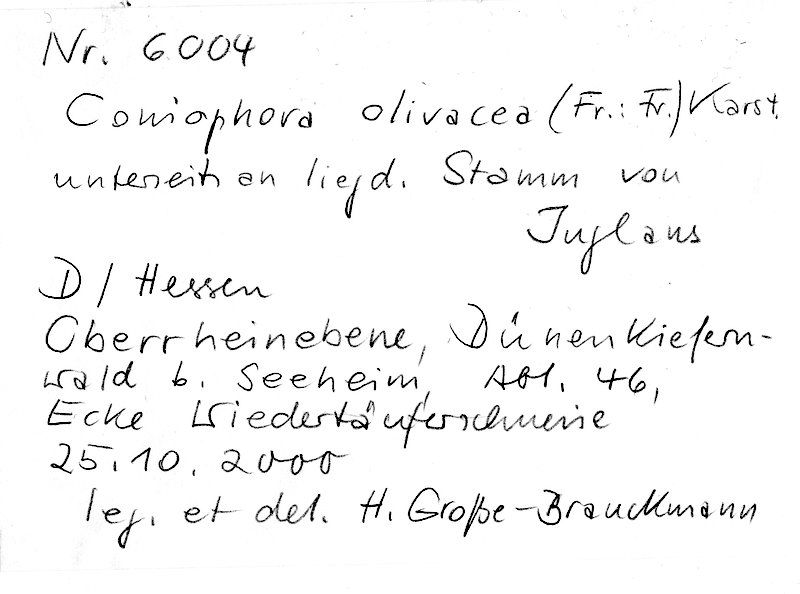 Nr. 6004
Coniophora olivacea (Fr.: Fr.) Karst.
unterseits an liegd. Stamm von
Juglans
D / Hessen
Oberrheinebene, Dünenkiefern-
wald b. Seeheim, Abt. 46,
Ecke Wiedertäuferschneise
25.10.2000
leg. et det. H. Große-Brauckmann